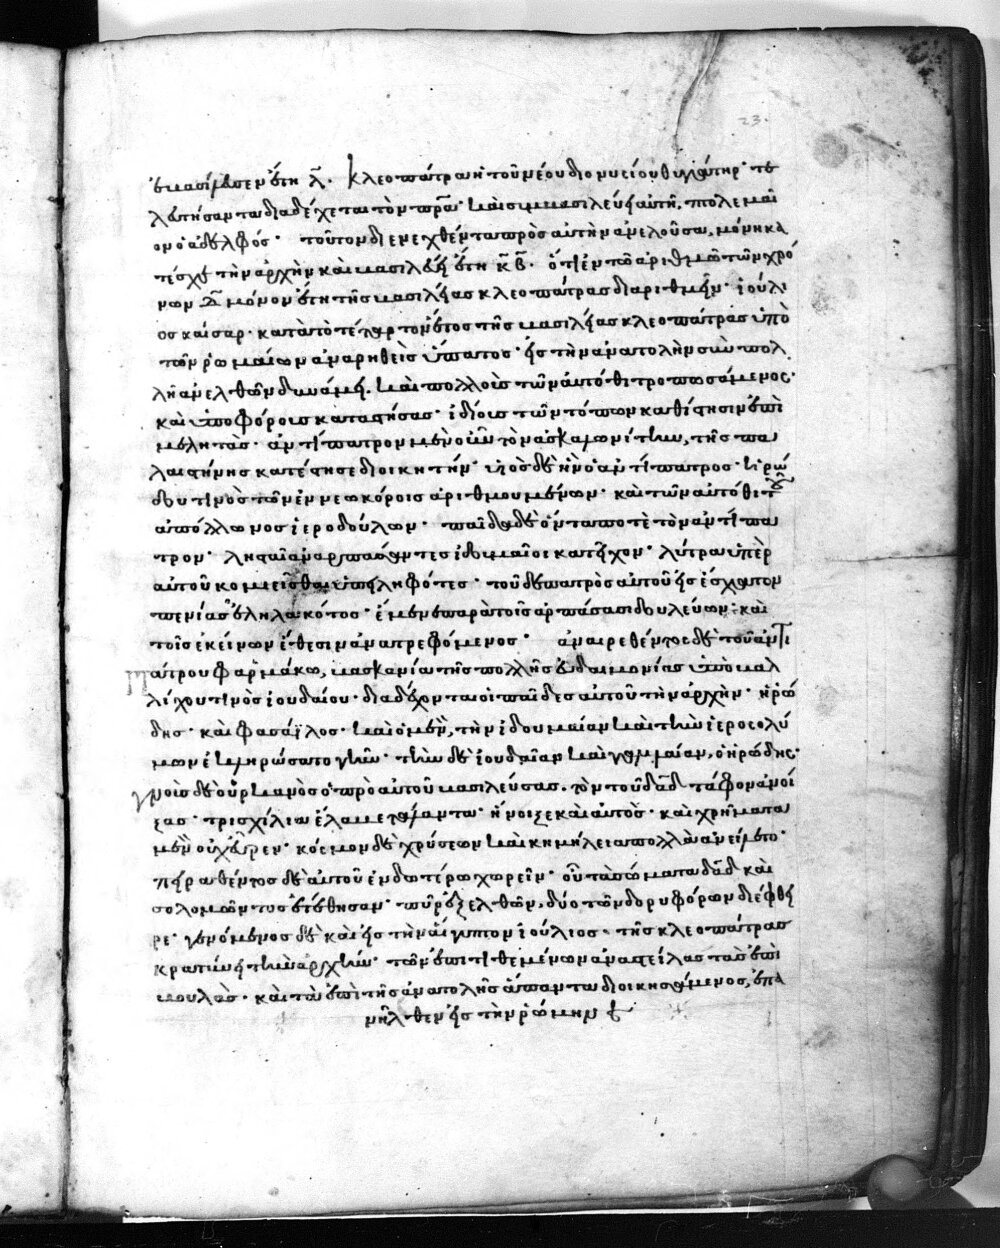 23.
ἐβασίλευσεν ἔτη λ̅. Κλεοπάτρα ἡ τοῦ νέου διονυσίου θυγάτηρ· τε
λευτήσαντα διαδέχεται τὸν πρ̅α· καὶ συμβασιλεύει αὐτῆ, πτολεμαῖ
ος ὁ ἀδελφός· τοῦτον διενεχθέντα πρὸς αὐτὴν ἀνελοῦσα, μόνη κα
τέσχε τὴν ἀρχὴν καὶ βασιλεύει ἔτη κ̅β̅. ὅτι ἐν τῶ ἀριθμῶ τῶν χρό
νων μόνον ἔτη τῆς βασιλείας κλεοπάτρας διαριθμεῖν· ἰούλι
ος καίσαρ· κατὰ τὸ τέταρτον ἔτος τῆς βασιλείας κλεοπάτρας ὑπὸ
τῶν ῥωμαίων ἀναρηθεὶς ὕπατος· εἰς τὴν ἀνατολὴν σὺν πολ
λῆ ἀνελθὼν δυνάμει. καὶ πολλοὺς τῶν αὐτόθι τροπωσάμενος·
καὶ ὑποφόροις καταστήσας· ἰδίοις τῶν τόπων καθίστησιν ἐπὶ
μελητὰς· ἀντίπατρον μὲν οὖν τὸν ἀσκαλωνίτην, τῆς πα
λαιστήνης κατέστησε διοικητήν· υἱὸς δὲ ἦν ὁ ἀντίπατρος· ἱερώ
δου τινὸς τῶν ἐν νεωκόροις ἀριθμουμένων· καὶ τῶν αὐτόθι τοῦ
ἀπόλλωνος ἱεροδούλων· παῖδα δὲ ὄντα ποτὲ τὸν ἀντίπα
τρον· λησταὶ ἀναρπάσαντες ἰδουμαῖοι κατεῖχον· λύτρα ὑπὲρ
αὐτοῦ κομιεῖσθαι ὑπειληφότες· τοῦ δὲ πατρὸς αὐτοῦ εἰς ἐσχάτην
πενίας ἐληλακότος· ἔμενε παρὰ τοῖς ἁρπάσασι δουλεύων· καὶ
τοῖς ἐκείνων ἔθεσιν ἀνατρεφόμενος· ἀναιρεθέντος δὲ τοῦ ἀντι
πάτρου φαρμάκω, βασκανία τῆς πολλῆς εὐδαιμονίας ὑπὸ μαλ
λίχου τινὸς ἰουδαίου· διαδέχονται οἱ παῖδες αὐτοῦ τὴν ἀρχὴν· ἡρώ
δης· καὶ φασάϊλος· καὶ ὁ μὲν, τὴν ἰδουμαίαν καὶ τὴν ἱεροσολύ
μων ἐκληρώσατο γῆν· τὴν δὲ ἰουδαΐαν καὶ γαμμαίαν, ὁ ἡρώδης·
γνοὺς δὲ οὑρκανὸς ὁ πρὸ αὐτοῦ βασιλεύσας. τὸν τοῦ δ̅α̅δ̅ τάφον ἀνοί
ξας· τρισχίλια ἔλαβε τάλαντα· ἤνοιξε καὶ αὐτὸς· καὶ χρήματα
μὲν οὐχ εὗρεν· κόσμον δὲ χρύσεων καὶ κημήλεια πολλὰ ἀνείλετο·
πειραθέντος δὲ αὐτοῦ ἐνδωτέρω χωρεῖν· οὗ τὰ σώματα δ̅α̅δ̅ καὶ
σολομῶντος ἐτέθησαν· πῦρ ἐξελθὼν, δύο τῶν δορυφόρων διέφθει
ρε· γενόμενος δὲ καὶ εἰς τὴν αἴγυπτον ἰούλιος· τῆς κλεοπάτρας
κρατύνει τὴν ἀρχὴν· τῶν ἐπιτιθεμένων ἀναστείλας τὰς ἐπι
βουλὰς· καὶ τὰ ἐπὶ τῆς ἀνατολῆς ἅπαντα διοικησάμενος, ἐπα
νῆλθεν εἰς τὴν ῥώμην